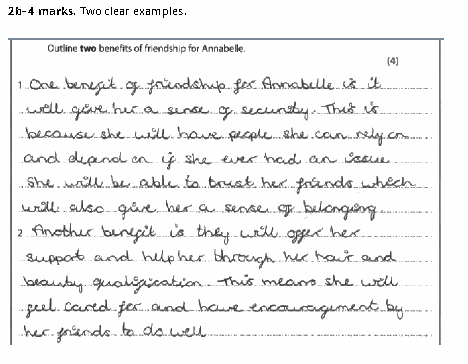 2b-4 marks. Two clear examples.
Outline two benefits of friendship for Annabelle.
(4)
1 One benefit of friendship for Annabelle is it
will give her a sense of security. This is
because she will have people she can rely on
and depend on if she ever had an issue
she will be able to trust her friends which
will also give her a sense of belonging
2 Another benefit is they will offer her
support and help her through her hair and
beauty qualification. This means she will
feel cared for and have encouragement by
her friends to do well